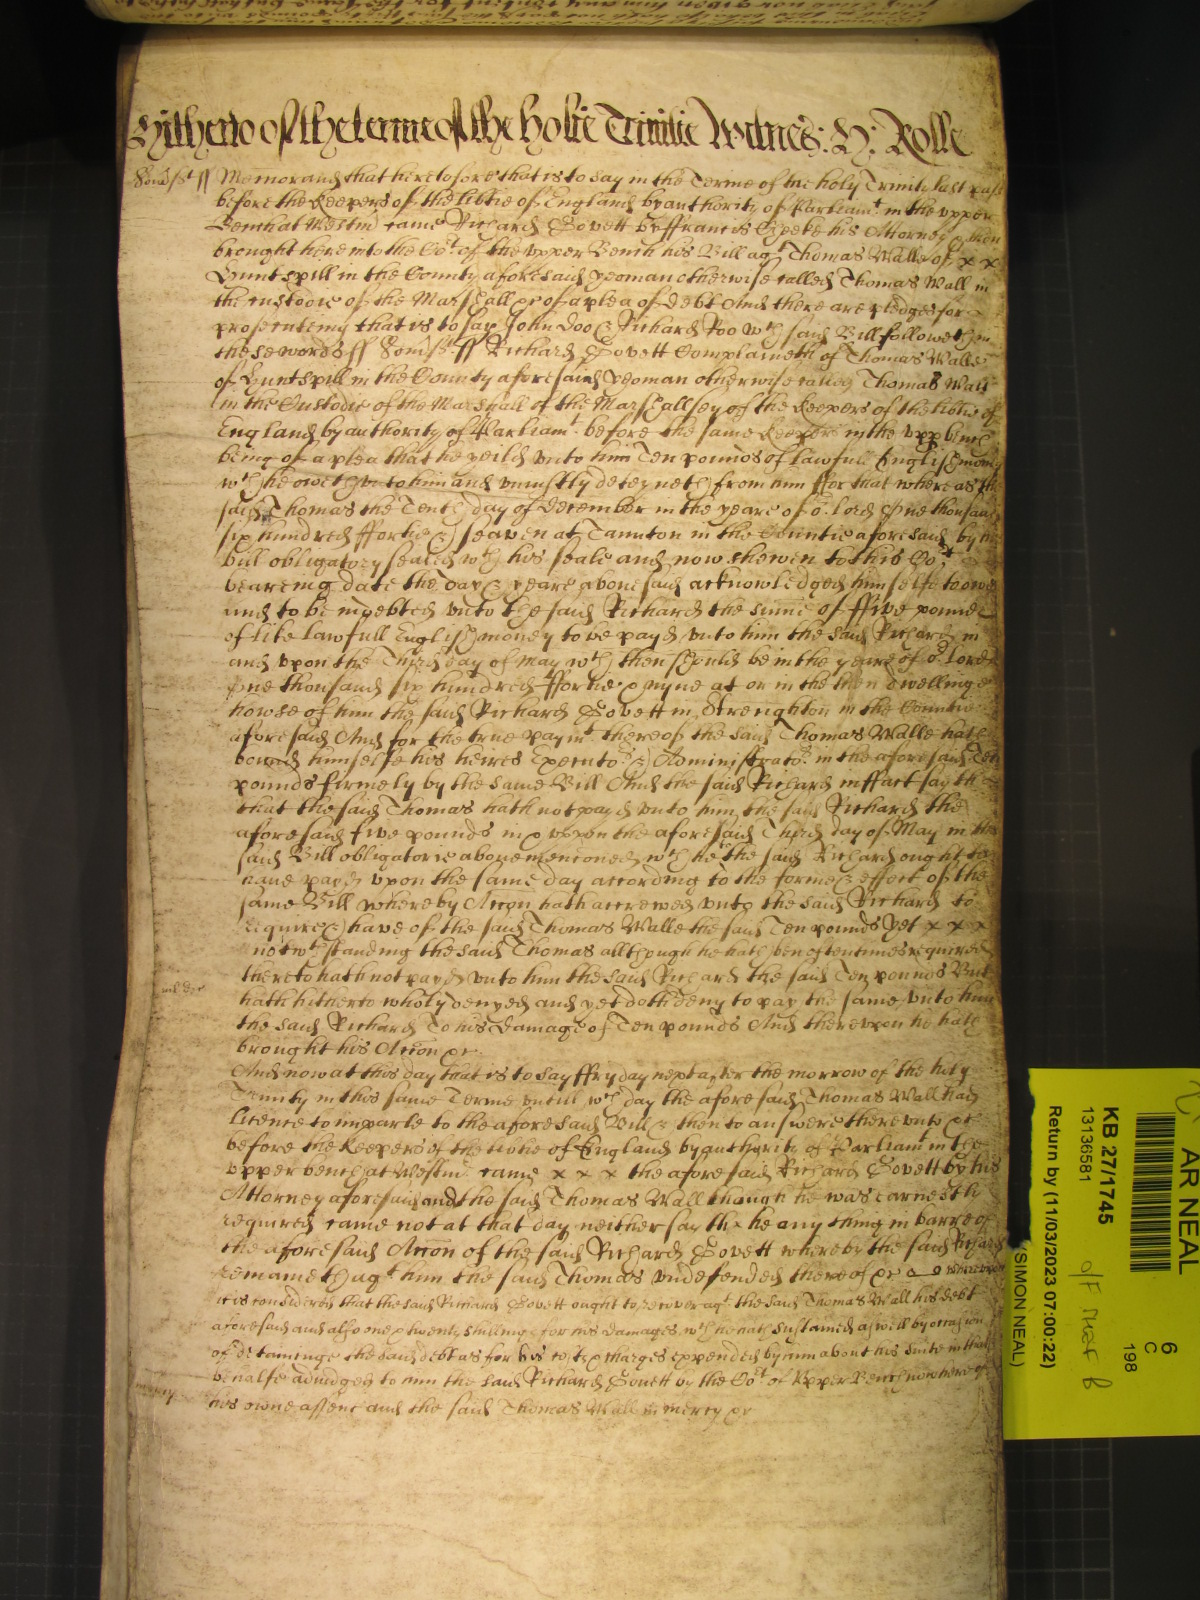 Hitherto of the terme of the holie Trinitie Witnes: H: Rolle
Som̃st ss Memorand that heretofore that is to say in the Terme of the holy Trinity last past
before the Keepers of the lib̃tie of England by authority of Parliamt in the vpper
Bench at Westm̃ came Richard Dovett by ffrancis his Attorney & then
brought here into the Cot of the vpper Bench his Bill agt Thomas Walle of x x
Huntspill in the County aforesaid yeoman otherwise called Thomas Wall in
the custodie of the Marshall &c of a plea of debt And there are pledges for
prosecuting that is to say John Doo & Richard Roo wch said Bill followeth in
these words ss Som̃st ss Richard Dovett Complaineth of Thomas Walle
of Huntspill in the County aforesaid yeoman otherwise called Thomas Wall
in the Custodie of the Marshall of the Marshallsey of the Keepers of the lib̃tie of
England by authority of Parliamt before the same Keepers in the vpp bench
being of a plea that he yeild vnto him Ten pounds of lawfull English mony
wch he oweth vnto him and vniustly deteyneth from him ffor that whereas the
said Thomas the Tenth day of December in the yeare of or Lord One thousand
six hundred ffortie & seaven at Taunton in the Countie aforesaid by his
bill obligatory sealed wth his seale and now shewen to this Cot
beareing date the day & yeare abovesaid acknowledged himselfe to owe
and to be indebted vnto the said Richard the sum̃e of ffive pounds
of like lawfull English money to be payd vnto him the said Richard in
and vpon the Third day of May wch then should be in the yeare of or Lord
One thousand six hundred ffortie & nyne at or in the then dwellinge
howse of him the said Richard Dovett in Streughton in the Countie
aforesaid And for the true paymt thereof the said Thomas Walle hath
bound himselfe his heires Executors & Administrators in the aforesaid Ten
pounds firmely by the same Bill And the said Richard in ffact sayth
that the said Thomas hath not payd vnto him the said Richard the
aforesaid five pounds in & vpon the aforesaid Third day of May in the
said Bill obligatorie abovementioned wch he the said Richard ought to
have payd vpon the same day according to the forme & effect of the
same Bill whereby Acc̃on hath accrewed vnto the said Richard to
require & have of the said Thomas Walle the said Ten pounds Yet x x x
notwthstanding the said Thomas allthough he hath ben oftentimes required
thereto hath not payd vnto him the said Richard the said Ten pounds But
hath hitherto wholy denyed and yet doth deny to pay the same vnto him
the said Richard To his Damage of Ten pounds And therevpon he hath
brought his Acc̃on &c
And now at this day that is to say ffryday next after the morrow of the holy
Trinity in this same Terme vntill wch day the aforesaid Thomas Wall had
licence to imparle to the aforesaid Bill & then to answere therevnto &c
before the Keepers of the lib̃tie of England by authority of Parliamt in the
vpper bench at Westm̃ came x x x the aforesaid Richard Dovett by his
Attorney aforesaid and the said Thomas Wall though he was earnestly
required came not at that day neither sayth he any thing in barre of
the aforesaid Acc̃on of the said Richard Dovett whereby the said Richard
remaineth agt him the said Thomas vndefended thereof &c wherevpon
it is considered that the said Richard Dovett ought to recover agt the said Thomas Wall his debt
aforesaid and also one & twenty shillings for his damages wch he hath sustained aswell by occasion
of detaininge the said debt as for his costs & charges expended by him about his suite in that
behalfe adiudged to him the said Richard Dovett by the Cot of Vpper Bench now here of
his owne assent and the said Thomas Wall in mercy &c
mercy
AR NEAL
KB 27/1745
13136581
Return by (11/03/2023 07:00:22)
(SIMON NEAL)
6
C
198